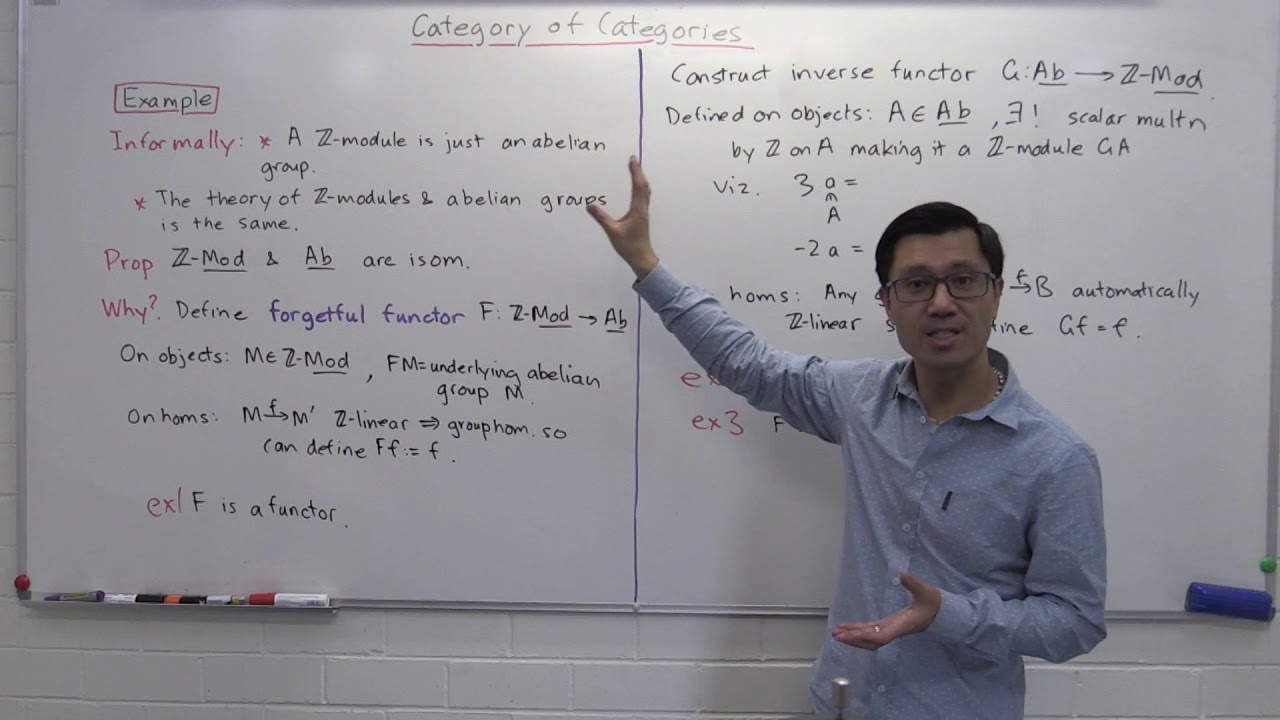 Category of Categories
Example
Informally: * A ℤ-module is just an abelian
group.
* The theory of ℤ-modules & abelian groups
is the same.
Prop ℤ-Mod & Ab are isom.
Why? Define forgetful functor F: ℤ-Mod → Ab
On objects: M ∈ ℤ-Mod , FM = underlying abelian
group M.
On homs: M →f M' ℤ-linear ⇒ group hom. so
can define Ff := f.
ex1 F is a functor.
Construct inverse functor G: Ab → ℤ-Mod.
Defined on objects: A ∈ Ab , ∃! scalar multn
by ℤ on A making it a ℤ-module GA
Viz. 3 a =
∈
A
-2 a =
homs: Any →f B automatically
ℤ-linear Gf = f.
ex3 F